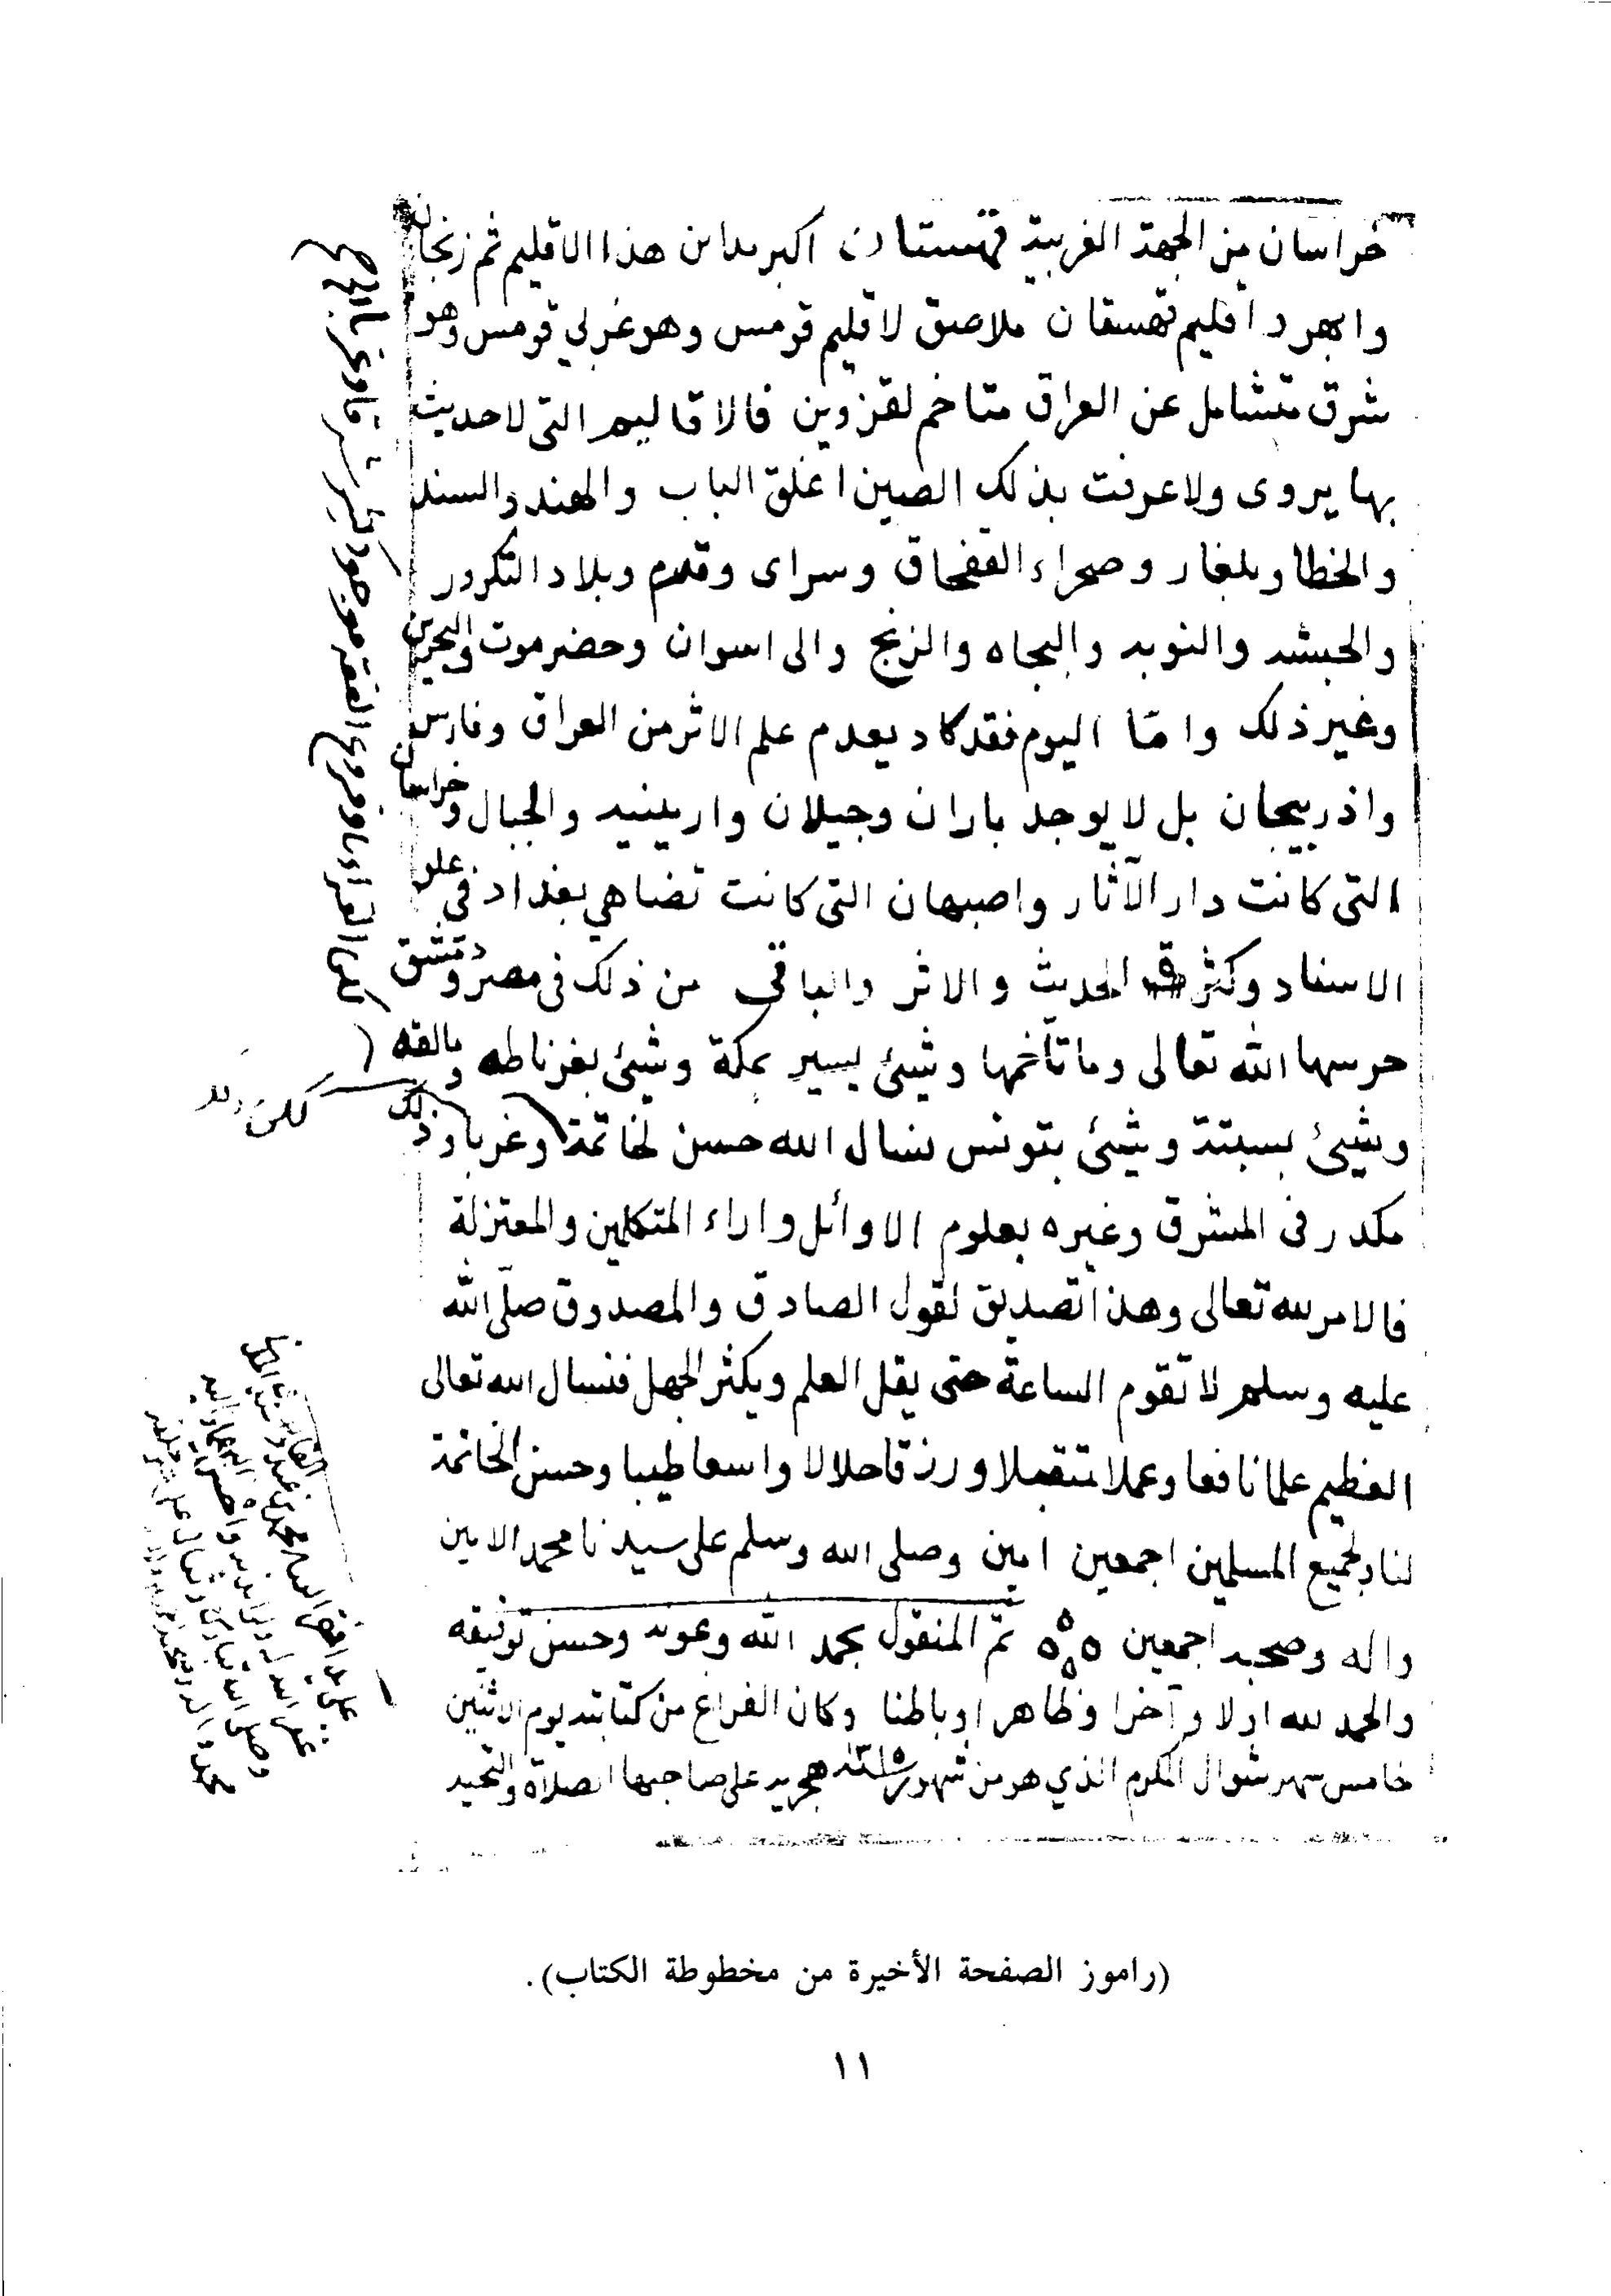 خراسان من الجهة الغربية قهستان اكبر مداين هذا الاقليم ثم زنجان
وابهر واقليم قهستان ملاصق لاقليم قومس وهو غربي قومس وهو
شرق متشامل عن العراق متاخم لقزوين فالاقاليم التى لاحديث
بها يروى ولا عرفت بذلك الصين اغلق الباب والهند والسند
والخطا وبلغار وصحراء القفجاق وسراى وقدم وبلاد التكرور
والحبشه والنوبه والبجاه والزنج والى اسوان وحضرموت والبحرين
وغير ذلك وامّا اليوم فقد كاد يعدم علم الاثر من العراق وفارس
واذربيجان بل لا يوجد باران وجيلان وارمينيه والجبال وخراسان
التى كانت دار الآثار واصبهان التى كانت تضاهي بغداد في علو
الاسناد وكثرة الحديث والاثر والباقى من ذلك فى مصر ودمشق
حرسها الله تعالى وما تآخمها وشيئ يسير بمكة وشيئ بغرناطه ومالقه
وشيئ بسبتة وشيئ بتونس نسال الله حسن لخاتمة وغرباو ذلك
مكدر فى المشرق وغيره بعلوم الاوائل واراء المتكلمين والمعتزلة
فالامر لله تعالى وهذا تصديق لقول الصادق والمصدوق صلّى الله
عليه وسلم لا تقوم الساعة حتى يقل العلم ويكثر الجهل فنسال الله تعالى
العظيم علما نافعا وعملا متقبلا ورزقا حلالا واسعا طيبا وحسن الخاتمة
لنا ولجميع المسلمين اجمعين امين وصلى الله وسلم على سيدنا محمد الامين
واله وصحبه اجمعين تمّ المنقول بحمد الله وعونه وحسن توفيقه
والحمد لله اولا وآخرا وظاهرا وباطنا وكان الفراغ من كتابته يوم الاثنين
خامس شهر شوال المكرم الذي هو من شهور هجريه على صاحبها الصلاة والتحيه
(راموز الصفحة الأخيرة من مخطوطة الكتاب).
١١